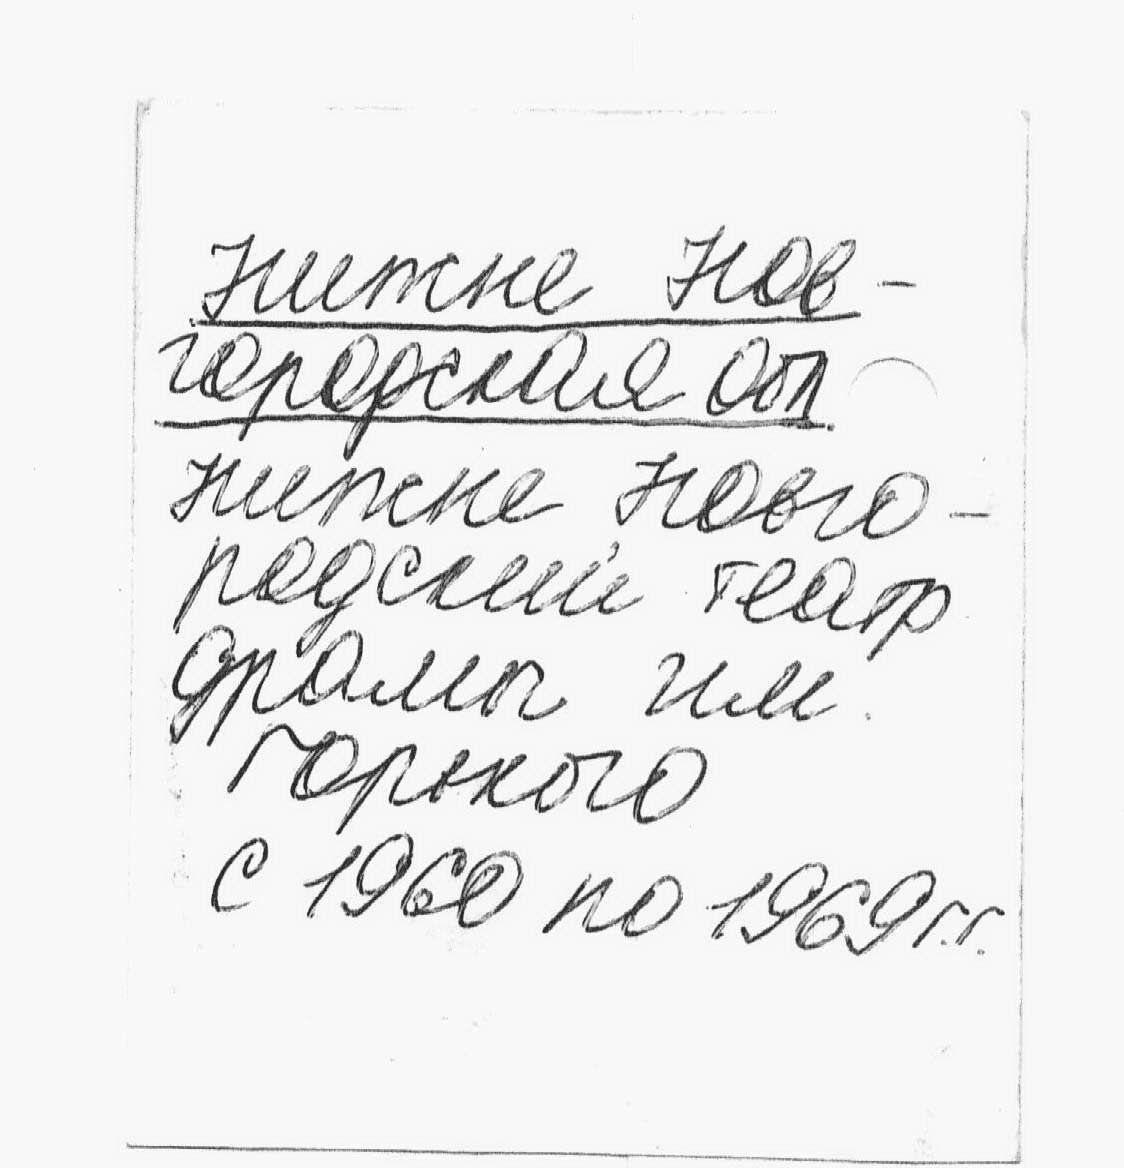 Нижне Нов-
городская обл.
Нижне Новго-
родский театр
драмы им.
Горького
с 1960 по 1969 г.г.